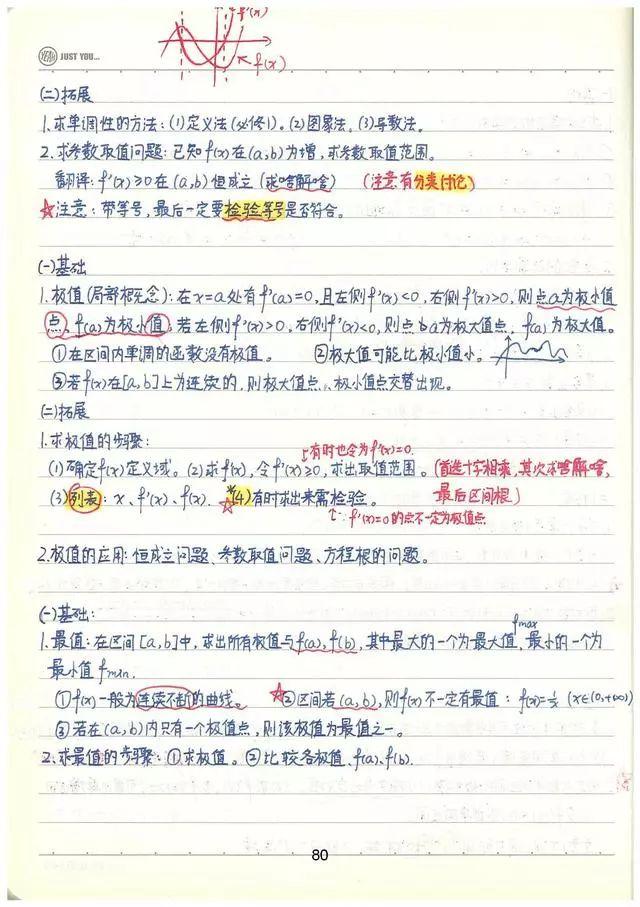 f'(x)
f(x)
YEAH JUST YOU...
(二)拓展
1.求单调性的方法:(1)定义法(必修1)。(2)图象法。(3)导数法。
2.求参数取值问题:已知f(x)在(a,b)为增,求参数取值范围。
翻译:f'(x)≥0在(a,b)恒成立(求啥解啥) (注意有分类讨论)
☆注意:带等号,最后一定要检验等号是否符合。
(一)基础
1.极值(局部概念):在x=a处有f'(a)=0,且左侧f'(x)<0,右侧f'(x)>0,则点a为极小值
点,f(a)为极小值;若左侧f'(x)>0,右侧f'(x)<0,则点a为极大值点,f(a)为极大值。
①在区间内单调的函数没有极值。 ②极大值可能比极小值小。
③若f(x)在[a,b]上为连续的,则极大值点、极小值点交替出现。
(二)拓展
1.求极值的步骤:
有时也令为f'(x)=0.
(1)确定f(x)定义域。(2)求f'(x),令f'(x)≥0,求出取值范围。(首选十字相乘,其次求啥解啥,
最后区间根)
(3)列表:x、f'(x)、f(x). ☆(4)有时求出来需检验。
∵f'(x)=0的点不一定为极值点
2.极值的应用:恒成立问题、参数取值问题、方程根的问题。
(一)基础:
1.最值:在区间[a,b]中,求出所有极值与f(a),f(b),其中最大的一个为最大值fmax,最小的一个为
最小值fmin.
①f(x)一般为连续不断的曲线。 ☆②区间若(a,b),则f(x)不一定有最值:f(x)=1/x (x∈(0,+∞))
③若在(a,b)内只有一个极值点,则该极值为最值之一。
2.求最值的步骤:①求极值。②比较各极值、f(a)、f(b).
80